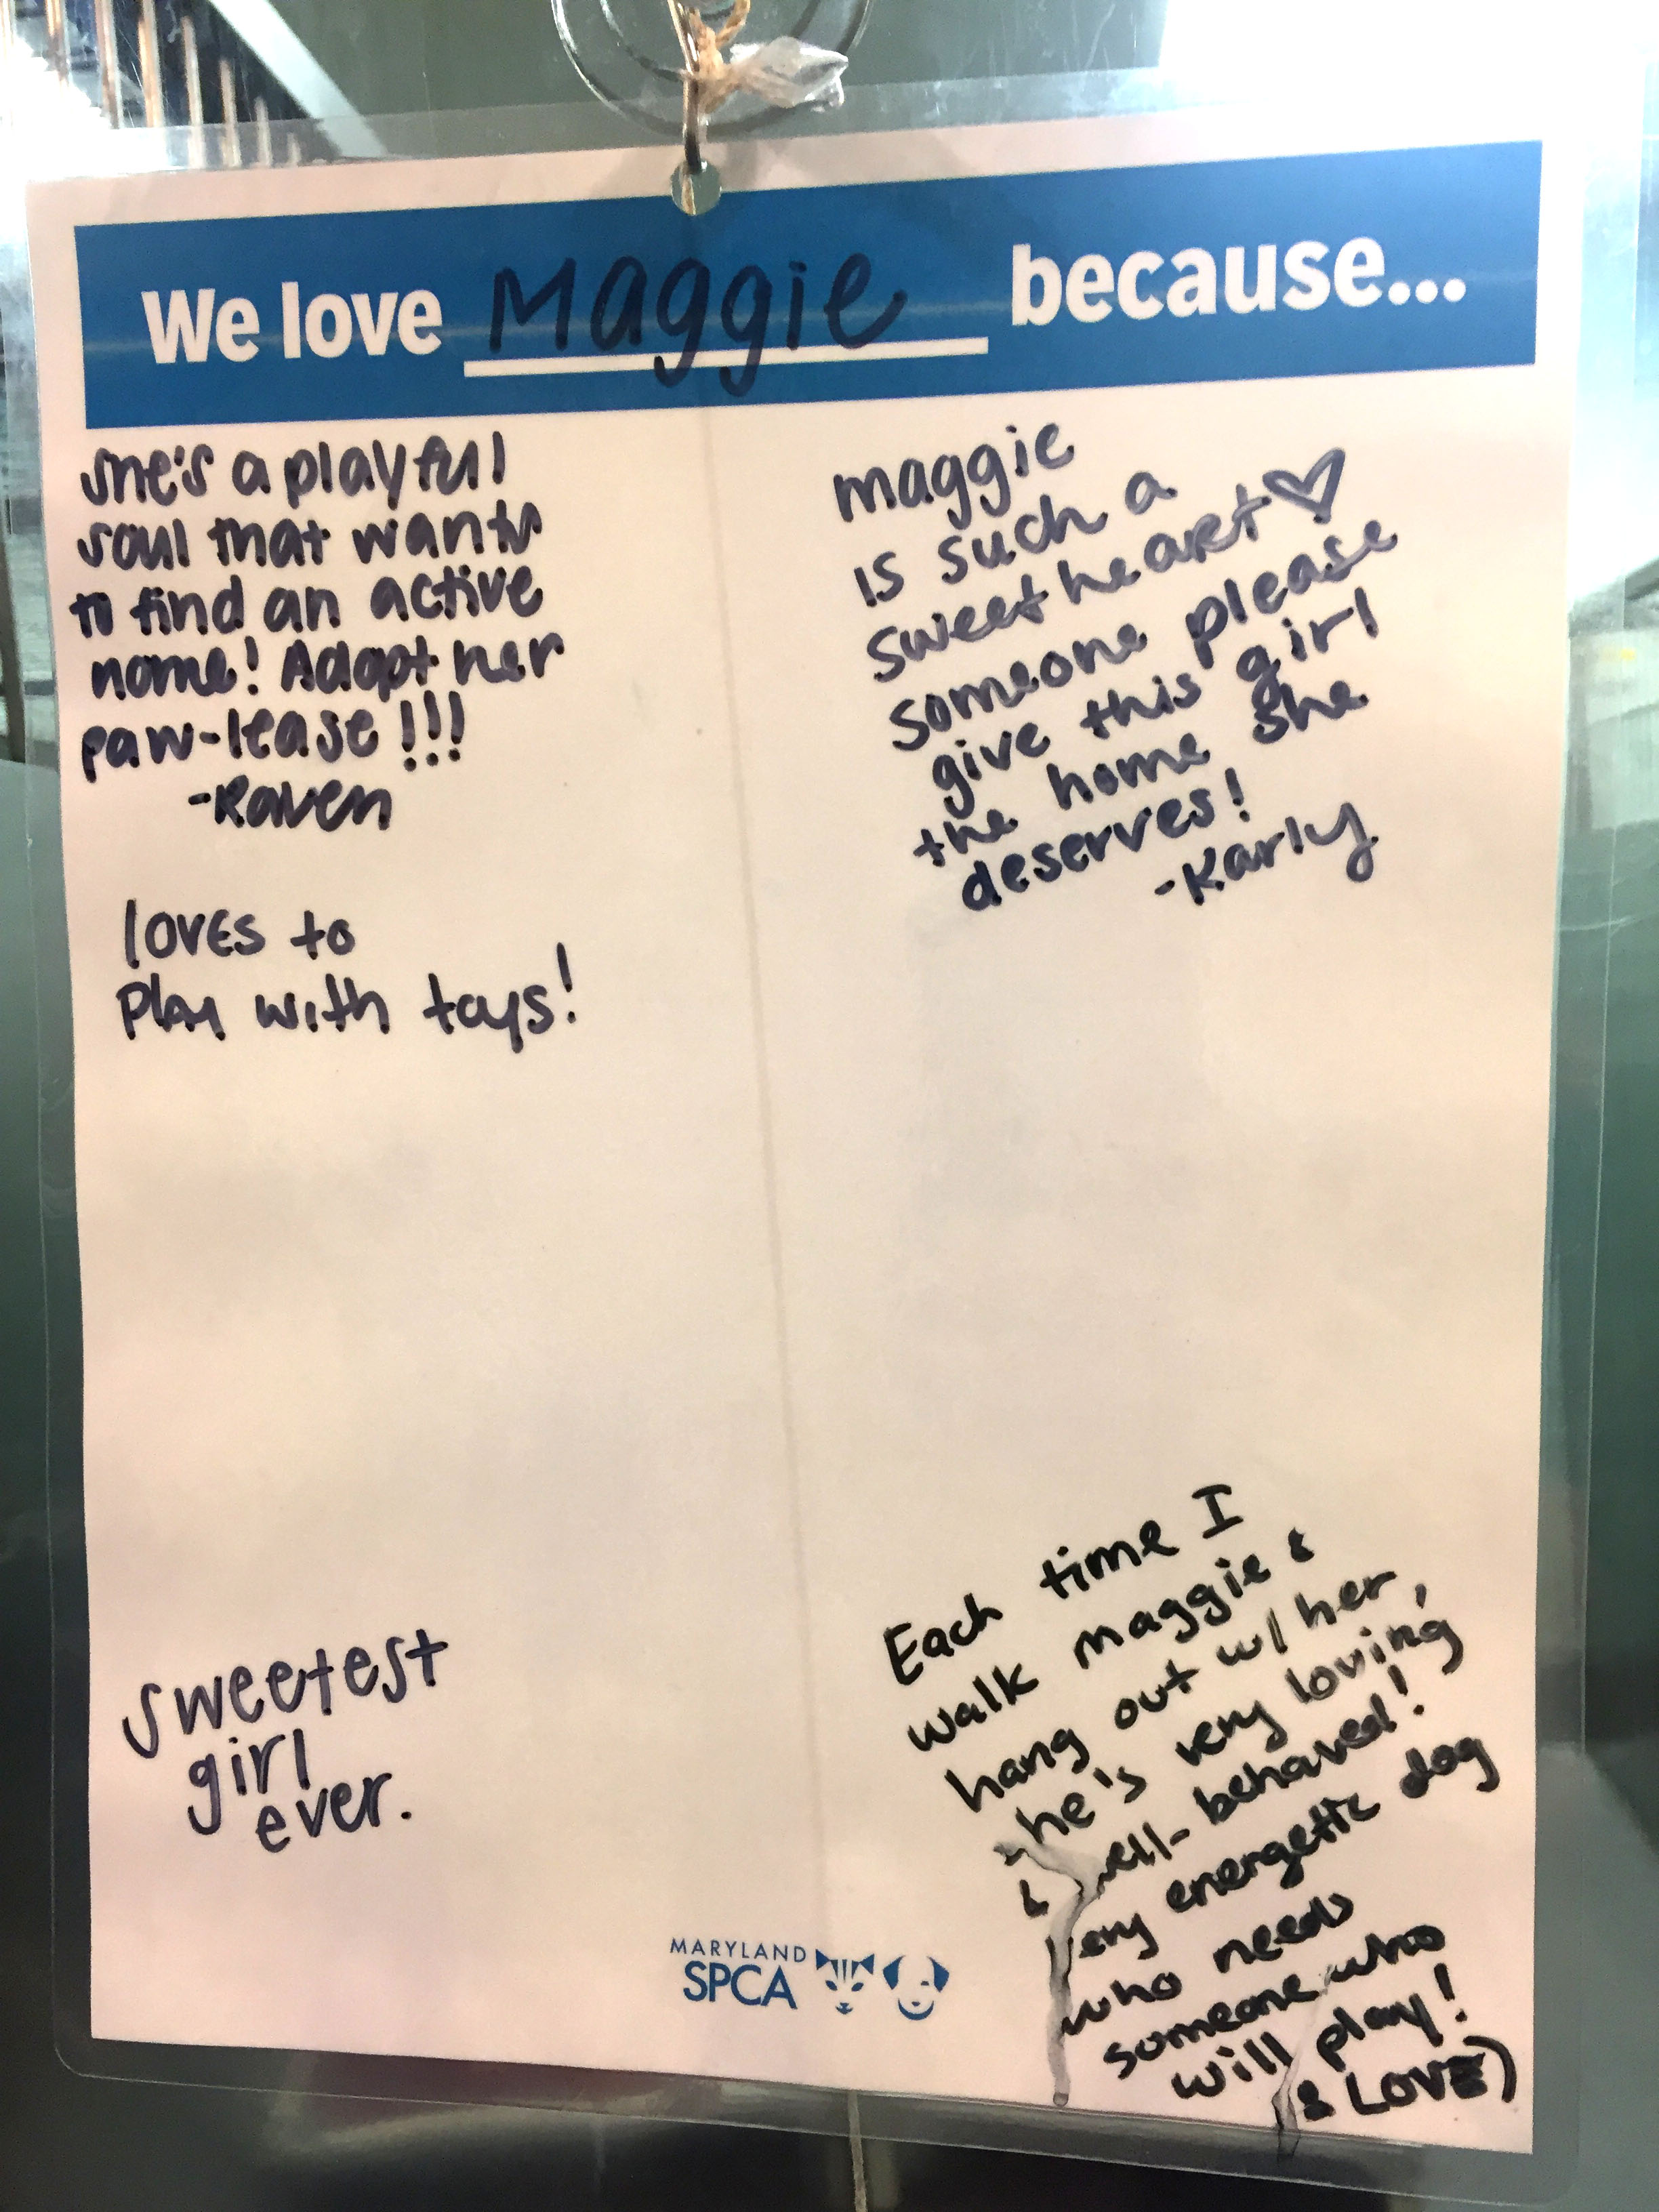 We love Maggie because...
she's a playful
soul that wants
to find an active
home! Adopt her
paw-lease!!!
-Raven
loves to
play with toys!
sweetest
girl
ever.
maggie
is such a
sweetheart♡
someone please
give this girl
the home she
deserves!
-Karly
Each time I
walk maggie &
hang out w/ her,
he's very loving
& ell-behaved!
ery energetic dog
who needs
someone who
will play!
(& LOVE)
MARYLAND
SPCA